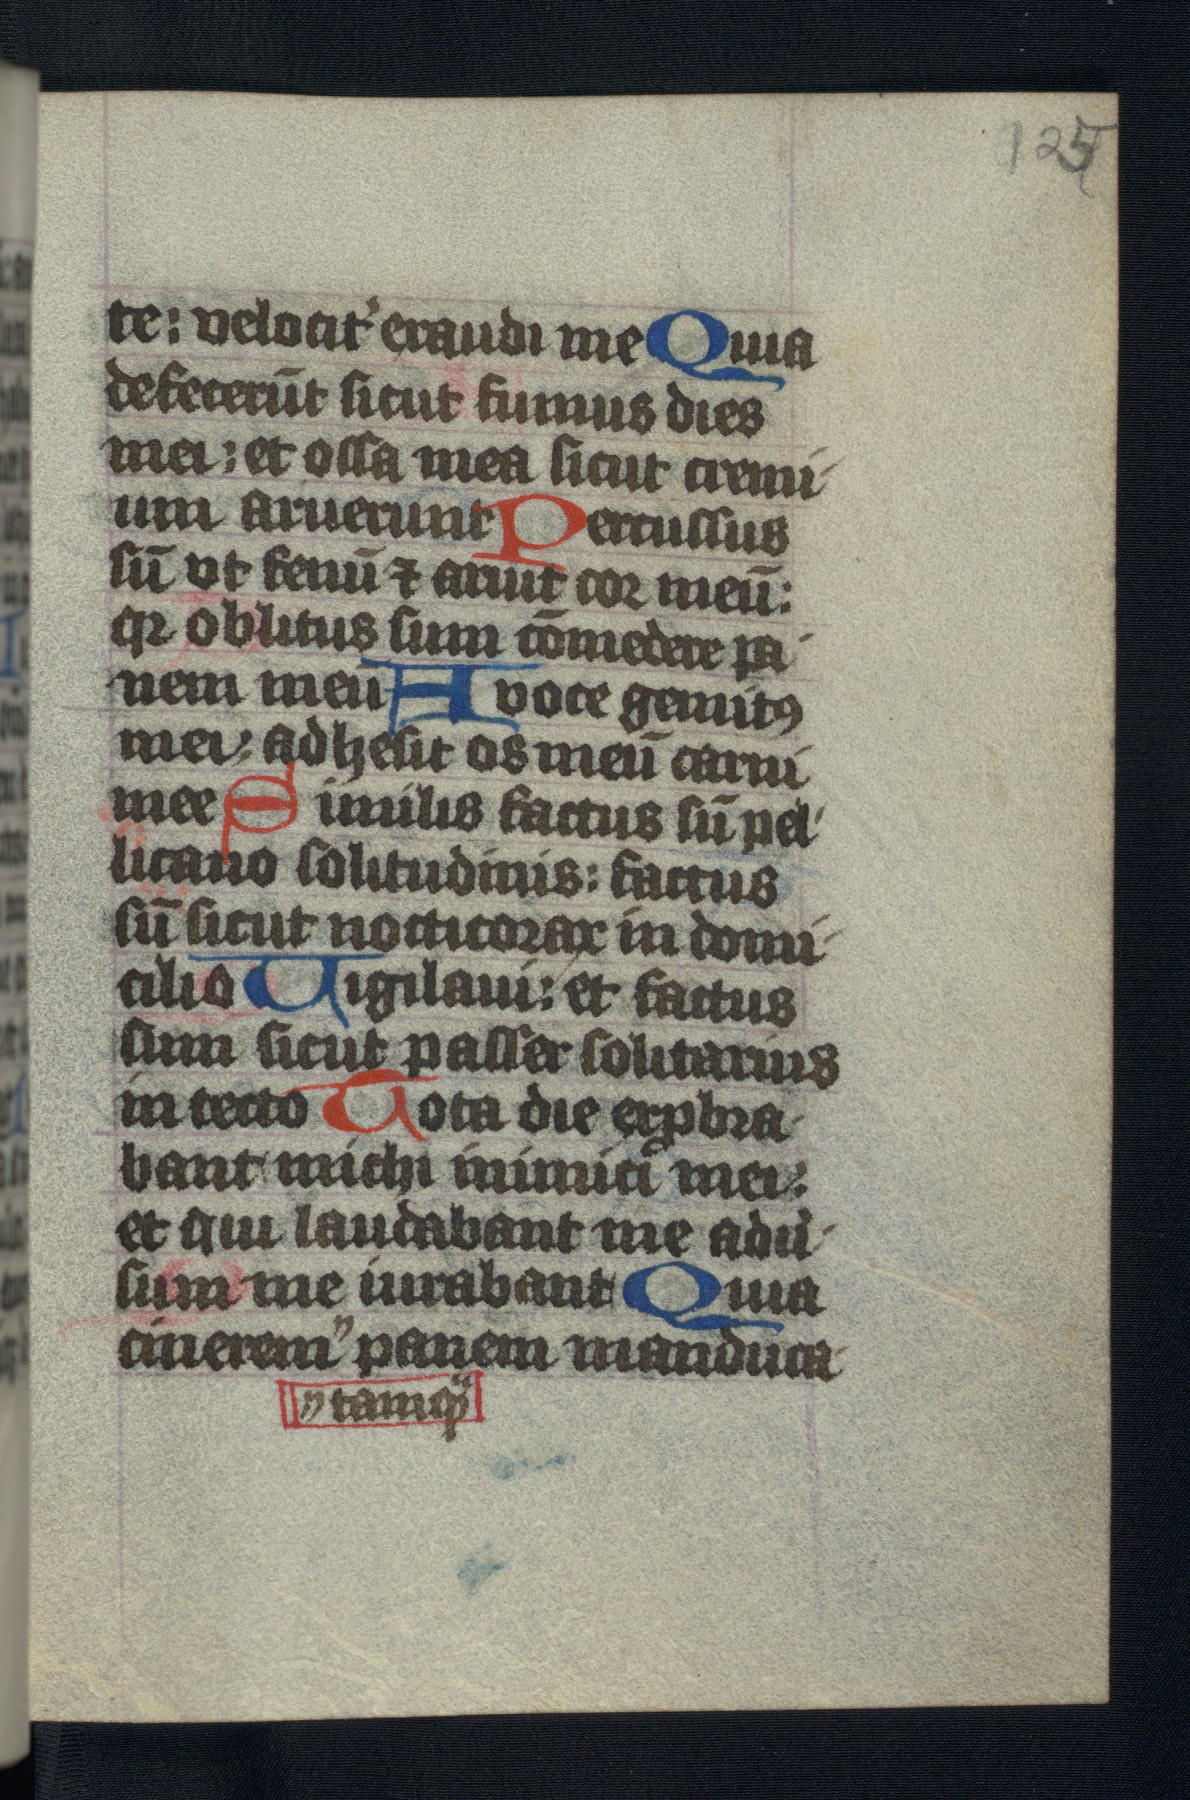 125
te: velocit᷑ exaudi me Quia
defecerūt sicut fumus dies
mei: et ossa mea sicut cremi-
um aruerunt Percussus
sū vt fenū ⁊ aruit cor meū:
qꝛ oblitus sum cōmedere pa-
nem meū A voce gemitꝯ
mei: adhesit os meū carni
mee Similis factus sū pel-
licano solitudinis: factus
sū sicut nocticorax in domi-
cilio Uigilaui: et factus
sum sicut passer solitarius
in tecto Tota die exꝓbra-
bant michi inimici mei:
et qui laudabant me adū-
sum me iurabant Quia
cinerem " panem manduca-
" tamqᷓ